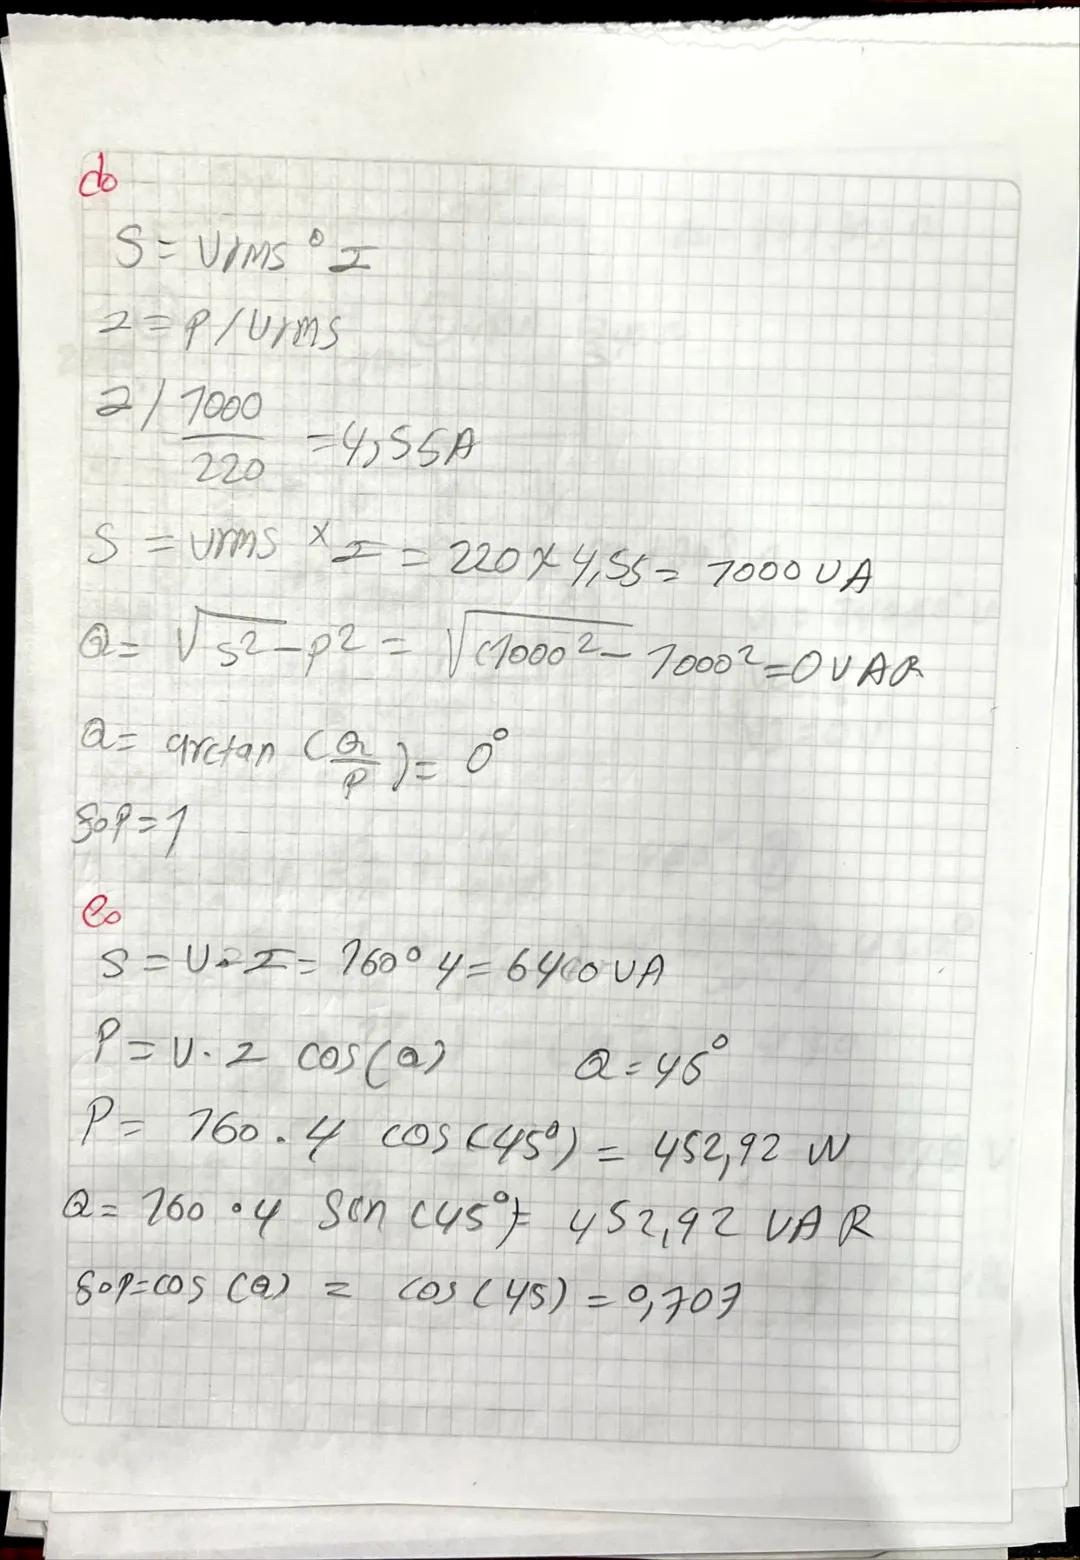 d.
S = Vrms · I
I = P/Vrms
I / 1000/220 = 4,55A
S = Vrms x I = 220 x 4,55 = 1000 VA
Q = √s² - p² = √(1000² - 1000² = 0 VAR
Q = arctan (Q/P) = 0°
f.p = 1
e.
S = V · I = 160 · 4 = 640 VA
P = V · I cos(Q) Q = 45°
P = 160 · 4 cos (45°) = 452,92 W
Q = 160 · 4 Sen (45°) = 452,92 VAR
f.p = cos (Q) = cos (45) = 0,707